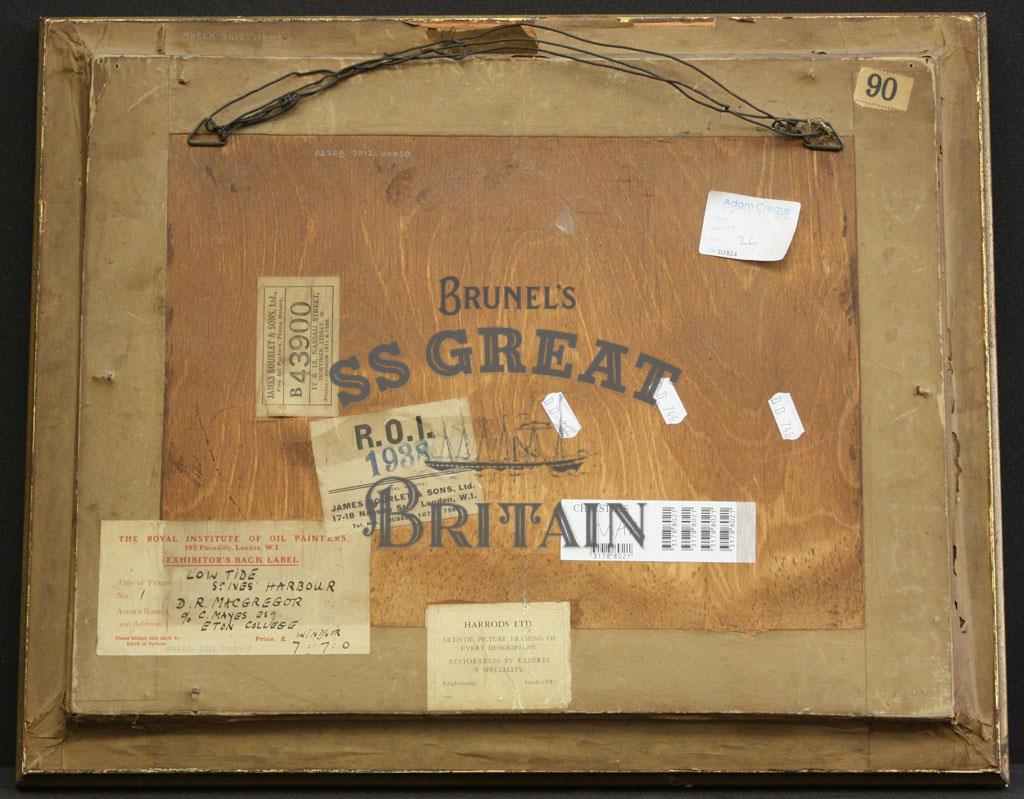 90
BRSGB 2012.00050
Adam Crease
26
D2824
BRUNEL'S
SS GREAT
BRITAIN
JAMES BOURLET & SONS, Ltd.,
B 43900
17 & 18, NASSAU STREET,
R.O.I.
1938
JAMES BOURLET & SONS, Ltd.
17-18 Nassau St., London, W.I.
D D 746
D D 746
CHRISTIE'S
3178 8021
3178 8021
3178 8021
3178 8021
3178 8021
THE ROYAL INSTITUTE OF OIL PAINTERS,
195 Piccadilly, London, W.1.
EXHIBITOR'S BACK LABEL
Title of Picture LOW TIDE
No. 1 ST IVES HARBOUR
Artist's Name D. R. MACGREGOR
and Address c/o C. MAYES ESQ
ETON COLLEGE
WINDSOR
Please attach this label to
BACK of Picture
Price, £ 7:7:0
BRSGB 2012.00050
HARRODS LTD
ARTISTIC PICTURE FRAMING OF
EVERY DESCRIPTION.
RESTORATION BY EXPERTS
A SPECIALITY.
Knightsbridge London SW1